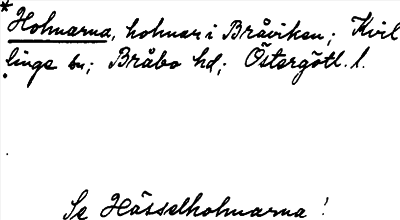 * Holmarna, holmar i Bråviken; Kvil
linge sn; Bråbo hd; Östergötl. l.
Se Hässelholmarna!